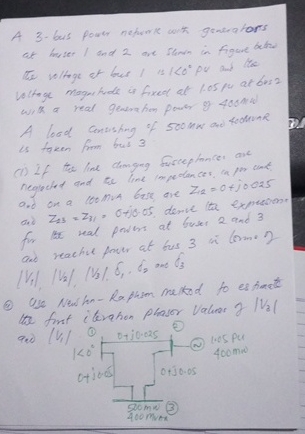 A 3-bus power network with generators
at buses 1 and 2 are shown in figure below
The voltage at bus 1 is 1<0° PU and the
voltage magnitude is fixed at 1.05 pu at bus 2
with a real generation power of 400MW
A load consisting of 500MW and 400MVAR
is taken from bus 3
(1) If the line charging susceptances are
neglected and the line impedances, in per unit,
and on a 100MVA base are Z12 = 0+j0.025
and Z23 = Z31 = 0+j0.05, derive the expressions
for the real powers at buses 2 and 3
and reactive power at bus 3 in terms of
|V1|, |V2|, |V3|, δ1, δ2 and δ3
② Use Newton-Raphson method to estimate
the first iteration phasor values of |V2|
and |V1|
① 0+j0.025 ②
1<0° 1.05 PU
400MW
0+j0.05 0+j0.05
500MW ③
400MVAR